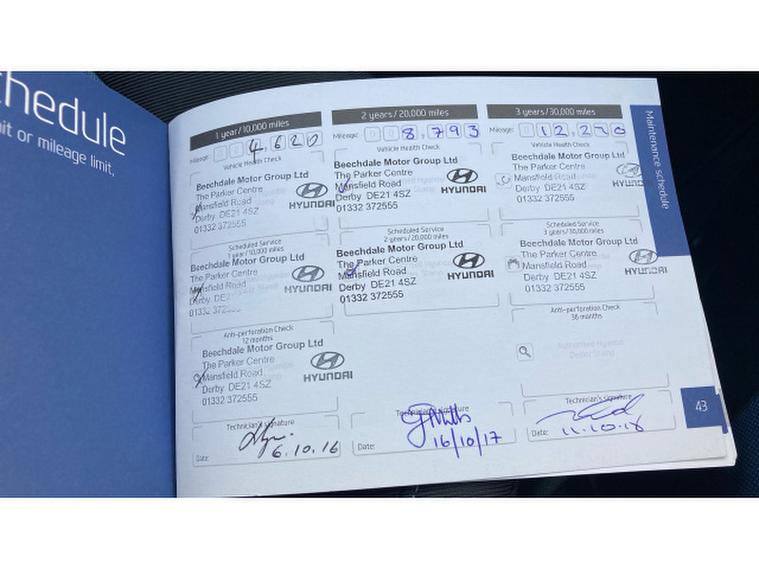 chedule
it or mileage limit.
1 year/10,000 miles
Mileage: 0 0 4,620
Vehicle Health Check
Beechdale Motor Group Ltd
The Parker Centre
Mansfield Road
Derby DE21 4SZ
01332 372555
HYUNDAI
Scheduled Service
1 year/10,000 miles
Beechdale Motor Group Ltd
The Parker Centre
Mansfield Road
Derby DE21 4SZ
01332 372555
HYUNDAI
Anti-perforation Check
12 months
Beechdale Motor Group Ltd
The Parker Centre
Mansfield Road
Derby DE21 4SZ
01332 372555
HYUNDAI
Technician's signature
Date: 6.10.16
2 years/20,000 miles
Mileage: 0 0 8,793
Vehicle Health Check
Beechdale Motor Group Ltd
The Parker Centre
Mansfield Road
Derby DE21 4SZ
01332 372555
HYUNDAI
Scheduled Service
2 years/20,000 miles
Beechdale Motor Group Ltd
The Parker Centre
Mansfield Road
Derby DE21 4SZ
01332 372555
HYUNDAI
Technician's signature
Date: 16/10/17
3 years/30,000 miles
Mileage: 0 12,270
Vehicle Health Check
Beechdale Motor Group Ltd
The Parker Centre
Mansfield Road
Derby DE21 4SZ
01332 372555
HYUNDAI
Scheduled Service
3 years/30,000 miles
Beechdale Motor Group Ltd
The Parker Centre
Mansfield Road
Derby DE21 4SZ
01332 372555
HYUNDAI
Anti-perforation Check
36 months
Authorised Hyundai
Dealer Stamp
Technician's signature
Date: 11.10.18
Maintenance schedule
43